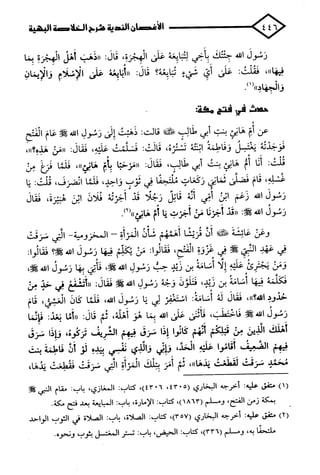 ٤٤٦
الأغصان الندية شرح الخلاصة البهية
رَسُولَ الله جِئْتُكَ بِأَخِي لِتُبَايِعَهُ عَلَى الْهِجْرَةِ، قَالَ: «ذَهَبَ أَهْلُ الْهِجْرَةِ بِمَا
فِيهَا»، فَقُلْتُ: عَلَى أَيِّ شَيْءٍ تُبَايِعُهُ؟ قَالَ: «أُبَايِعُهُ عَلَى الْإِسْلَامِ وَالْإِيمَانِ
وَالْجِهَادِ»(١).
حدث في فتح مكة:
عن أُمَّ هَانِئٍ بِنْتَ أَبِي طَالِبٍ ﷺ قالت: ذَهَبْتُ إِلَى رَسُولِ الله ﷺ عَامَ الْفَتْحِ
فَوَجَدْتُهُ يَغْتَسِلُ وَفَاطِمَةُ ابْنَتُهُ تَسْتُرُهُ، قَالَتْ: فَسَلَّمْتُ عَلَيْهِ، فَقَالَ: «مَنْ هَذِهِ؟»،
فَقُلْتُ: أَنَا أُمُّ هَانِئٍ بِنْتُ أَبِي طَالِبٍ، فَقَالَ: «مَرْحَبًا بِأُمِّ هَانِئٍ»، فَلَمَّا فَرَغَ مِنْ
غُسْلِهِ، قَامَ فَصَلَّى ثَمَانِيَ رَكَعَاتٍ مُلْتَحِفًا فِي ثَوْبٍ وَاحِدٍ، فَلَمَّا انْصَرَفَ، قُلْتُ: يَا
رَسُولَ الله زَعَمَ ابْنُ أُمِّي أَنَّهُ قَاتِلٌ رَجُلًا قَدْ أَجَرْتُهُ فُلَانَ ابْنَ هُبَيْرَةَ، فَقَالَ
رَسُولُ الله ﷺ: «قَدْ أَجَرْنَا مَنْ أَجَرْتِ يَا أُمَّ هَانِئٍ»(٢).
وعَنْ عَائِشَةَ أَنَّ قُرَيْشًا أَهَمَّهُمْ شَأْنُ الْمَرْأَةِ –المخزومية– الَّتِي سَرَقَتْ
فِي عَهْدِ النَّبِيِّ ﷺ فِي غَزْوَةِ الْفَتْحِ، فَقَالُوا: مَنْ يُكَلِّمُ فِيهَا رَسُولَ الله ﷺ؟ فَقَالُوا:
وَمَنْ يَجْتَرِئُ عَلَيْهِ إِلَّا أُسَامَةُ بْنُ زَيْدٍ حِبُّ رَسُولِ الله ﷺ، فَأُتِيَ بِهَا رَسُولُ الله ﷺ،
فَكَلَّمَهُ فِيهَا أُسَامَةُ بْنُ زَيْدٍ، فَتَلَوَّنَ وَجْهُ رَسُولِ الله ﷺ فَقَالَ: «أَتَشْفَعُ فِي حَدٍّ مِنْ
حُدُودِ الله؟»، فَقَالَ لَهُ أُسَامَةُ: اسْتَغْفِرْ لِي يَا رَسُولَ الله، فَلَمَّا كَانَ الْعَشِيُّ، قَامَ
رَسُولُ الله ﷺ فَاخْتَطَبَ، فَأَثْنَى عَلَى الله بِمَا هُوَ أَهْلُهُ، ثُمَّ قَالَ: «أَمَّا بَعْدُ، فَإِنَّمَا
أَهْلَكَ الَّذِينَ مِنْ قَبْلِكُمْ أَنَّهُمْ كَانُوا إِذَا سَرَقَ فِيهِمُ الشَّرِيفُ تَرَكُوهُ، وَإِذَا سَرَقَ
فِيهِمُ الضَّعِيفُ أَقَامُوا عَلَيْهِ الْحَدَّ، وَإِنِّي وَالَّذِي نَفْسِي بِيَدِهِ لَوْ أَنَّ فَاطِمَةَ بِنْتَ
مُحَمَّدٍ سَرَقَتْ لَقَطَعْتُ يَدَهَا»، ثُمَّ أَمَرَ بِتِلْكَ الْمَرْأَةِ الَّتِي سَرَقَتْ فَقُطِعَتْ يَدُهَا،
(١) متفق عليه: أخرجه البخاري (٤٣٠٥، ٤٣٠٦)، كتاب: المغازي، باب: مقام النبي ﷺ
بمكة زمن الفتح، ومسلم (١٨٦٣)، كتاب: الإمارة، باب: المبايعة بعد فتح مكة.
(٢) متفق عليه: أخرجه البخاري (٣٥٧)، كتاب: الصلاة، باب: الصلاة في الثوب الواحد
ملتحفا به، ومسلم (٣٣٦)، كتاب: الحيض، باب: تستر المغتسل بثوب ونحوه.